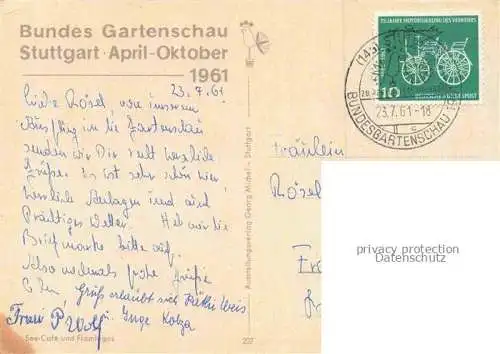 Bundes Gartenschau
Stuttgart · April-Oktober
1961
23.7.61
Liebe Rösel, von unserem
Ausflug in die Gartenschau
senden wir Dir recht herzliche
Grüße. Es ist sehr schön hier
herrliche Anlagen und
Prächtiges Wetter. Heb mir die
Briefmarke bitte auf.
Also nochmals frohe Grüße
Grüß erlaubt sich
Frau P. Wolf Inge
See-Café und Flamingos
207
Ausstellungsverlag Georg Michel - Stuttgart
75 JAHRE MOTORISIERUNG DES VERKEHRS
10
DEUTSCHE BUNDESPOST
(14a)
23.7.61-18
BUNDESGARTENSCHAU
Fräulein
Rösel
privacy protection
Datenschutz